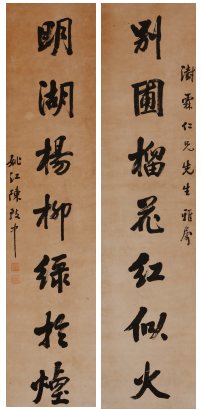 澍霖仁兄先生雅属
别圃榴花红似火
明湖楊柳緑於煙
姚江陳政中